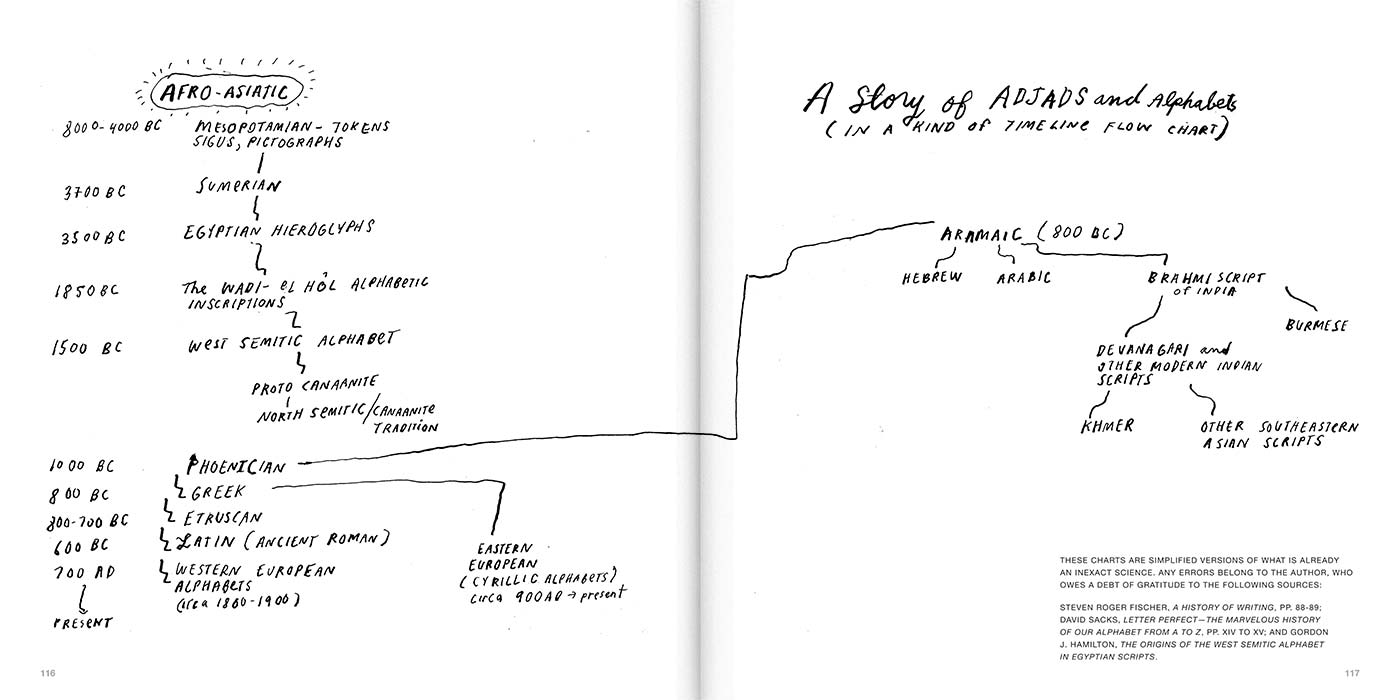 AFRO-ASIATIC
8000-4000 BC MESOPOTAMIAN - TOKENS
SIGUS, PICTOGRAPHS
3700 BC SUMERIAN
3500 BC EGYPTIAN HIEROGLYPHS
1850 BC The WADI- eL HÔL ALPHABETIC
INSCRIPTIONS
1500 BC West SEMITIC ALPHABET
PROTO CANAANITE
NORTH SEMITIC/CANAANITE
TRADITION
1000 BC PHOENICIAN
800 BC GREEK
800-700 BC ETRUSCAN
600 BC LATIN (ANCIENT ROMAN)
700 AD WESTERN EUROPEAN
ALPHABETS
(circa 1800-1900)
PRESENT
EASTERN
EUROPEAN
(CYRILLIC ALPHABETS)
circa 900 AD → present
116
A Story of ADJADS and Alphabets
(IN A KIND OF TIMELINE FLOW CHART)
ARAMAIC (800 BC)
HEBREW ARABIC BRAHMI SCRIPT
of INDIA
BURMESE
DEVANAGARI and
OTHER MODERN INDIAN
SCRIPTS
KHMER OTHER SOUTHEASTERN
ASIAN SCRIPTS
THESE CHARTS ARE SIMPLIFIED VERSIONS OF WHAT IS ALREADY
AN INEXACT SCIENCE. ANY ERRORS BELONG TO THE AUTHOR, WHO
OWES A DEBT OF GRATITUDE TO THE FOLLOWING SOURCES:
STEVEN ROGER FISCHER, A HISTORY OF WRITING, PP. 88-89;
DAVID SACKS, LETTER PERFECT—THE MARVELOUS HISTORY
OF OUR ALPHABET FROM A TO Z, PP. XIV TO XV; AND GORDON
J. HAMILTON, THE ORIGINS OF THE WEST SEMITIC ALPHABET
IN EGYPTIAN SCRIPTS.
117